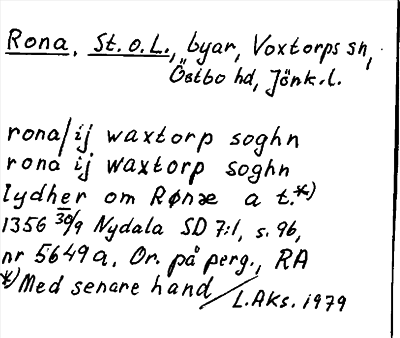 Rona, St. o. L., byar, Voxtorps sn,
Östbo hd, Jönk. l.
rona/ij waxtorp soghn
rona ij waxtorp soghn
lydher om Rønæ a t.*)
1356 30/9 Nydala SD 7:1, s. 96,
nr 5649a. Or. på perg., RA
*) Med senare hand
L. Aks. 1979